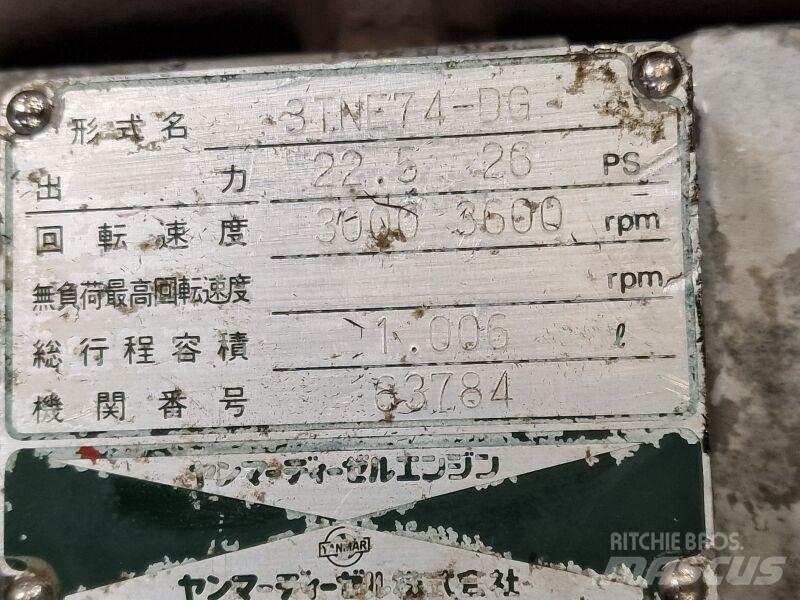 形式名 3TNE74-DG
出力 22.5 26 PS
回転速度 3000 3600 rpm
無負荷最高回転速度 rpm
総行程容積 1.006 ℓ
機関番号 63784
ヤンマーディーゼルエンジン
YANMAR
ヤンマーディーゼル株式会社
RITCHIE BROS.
MASCUS